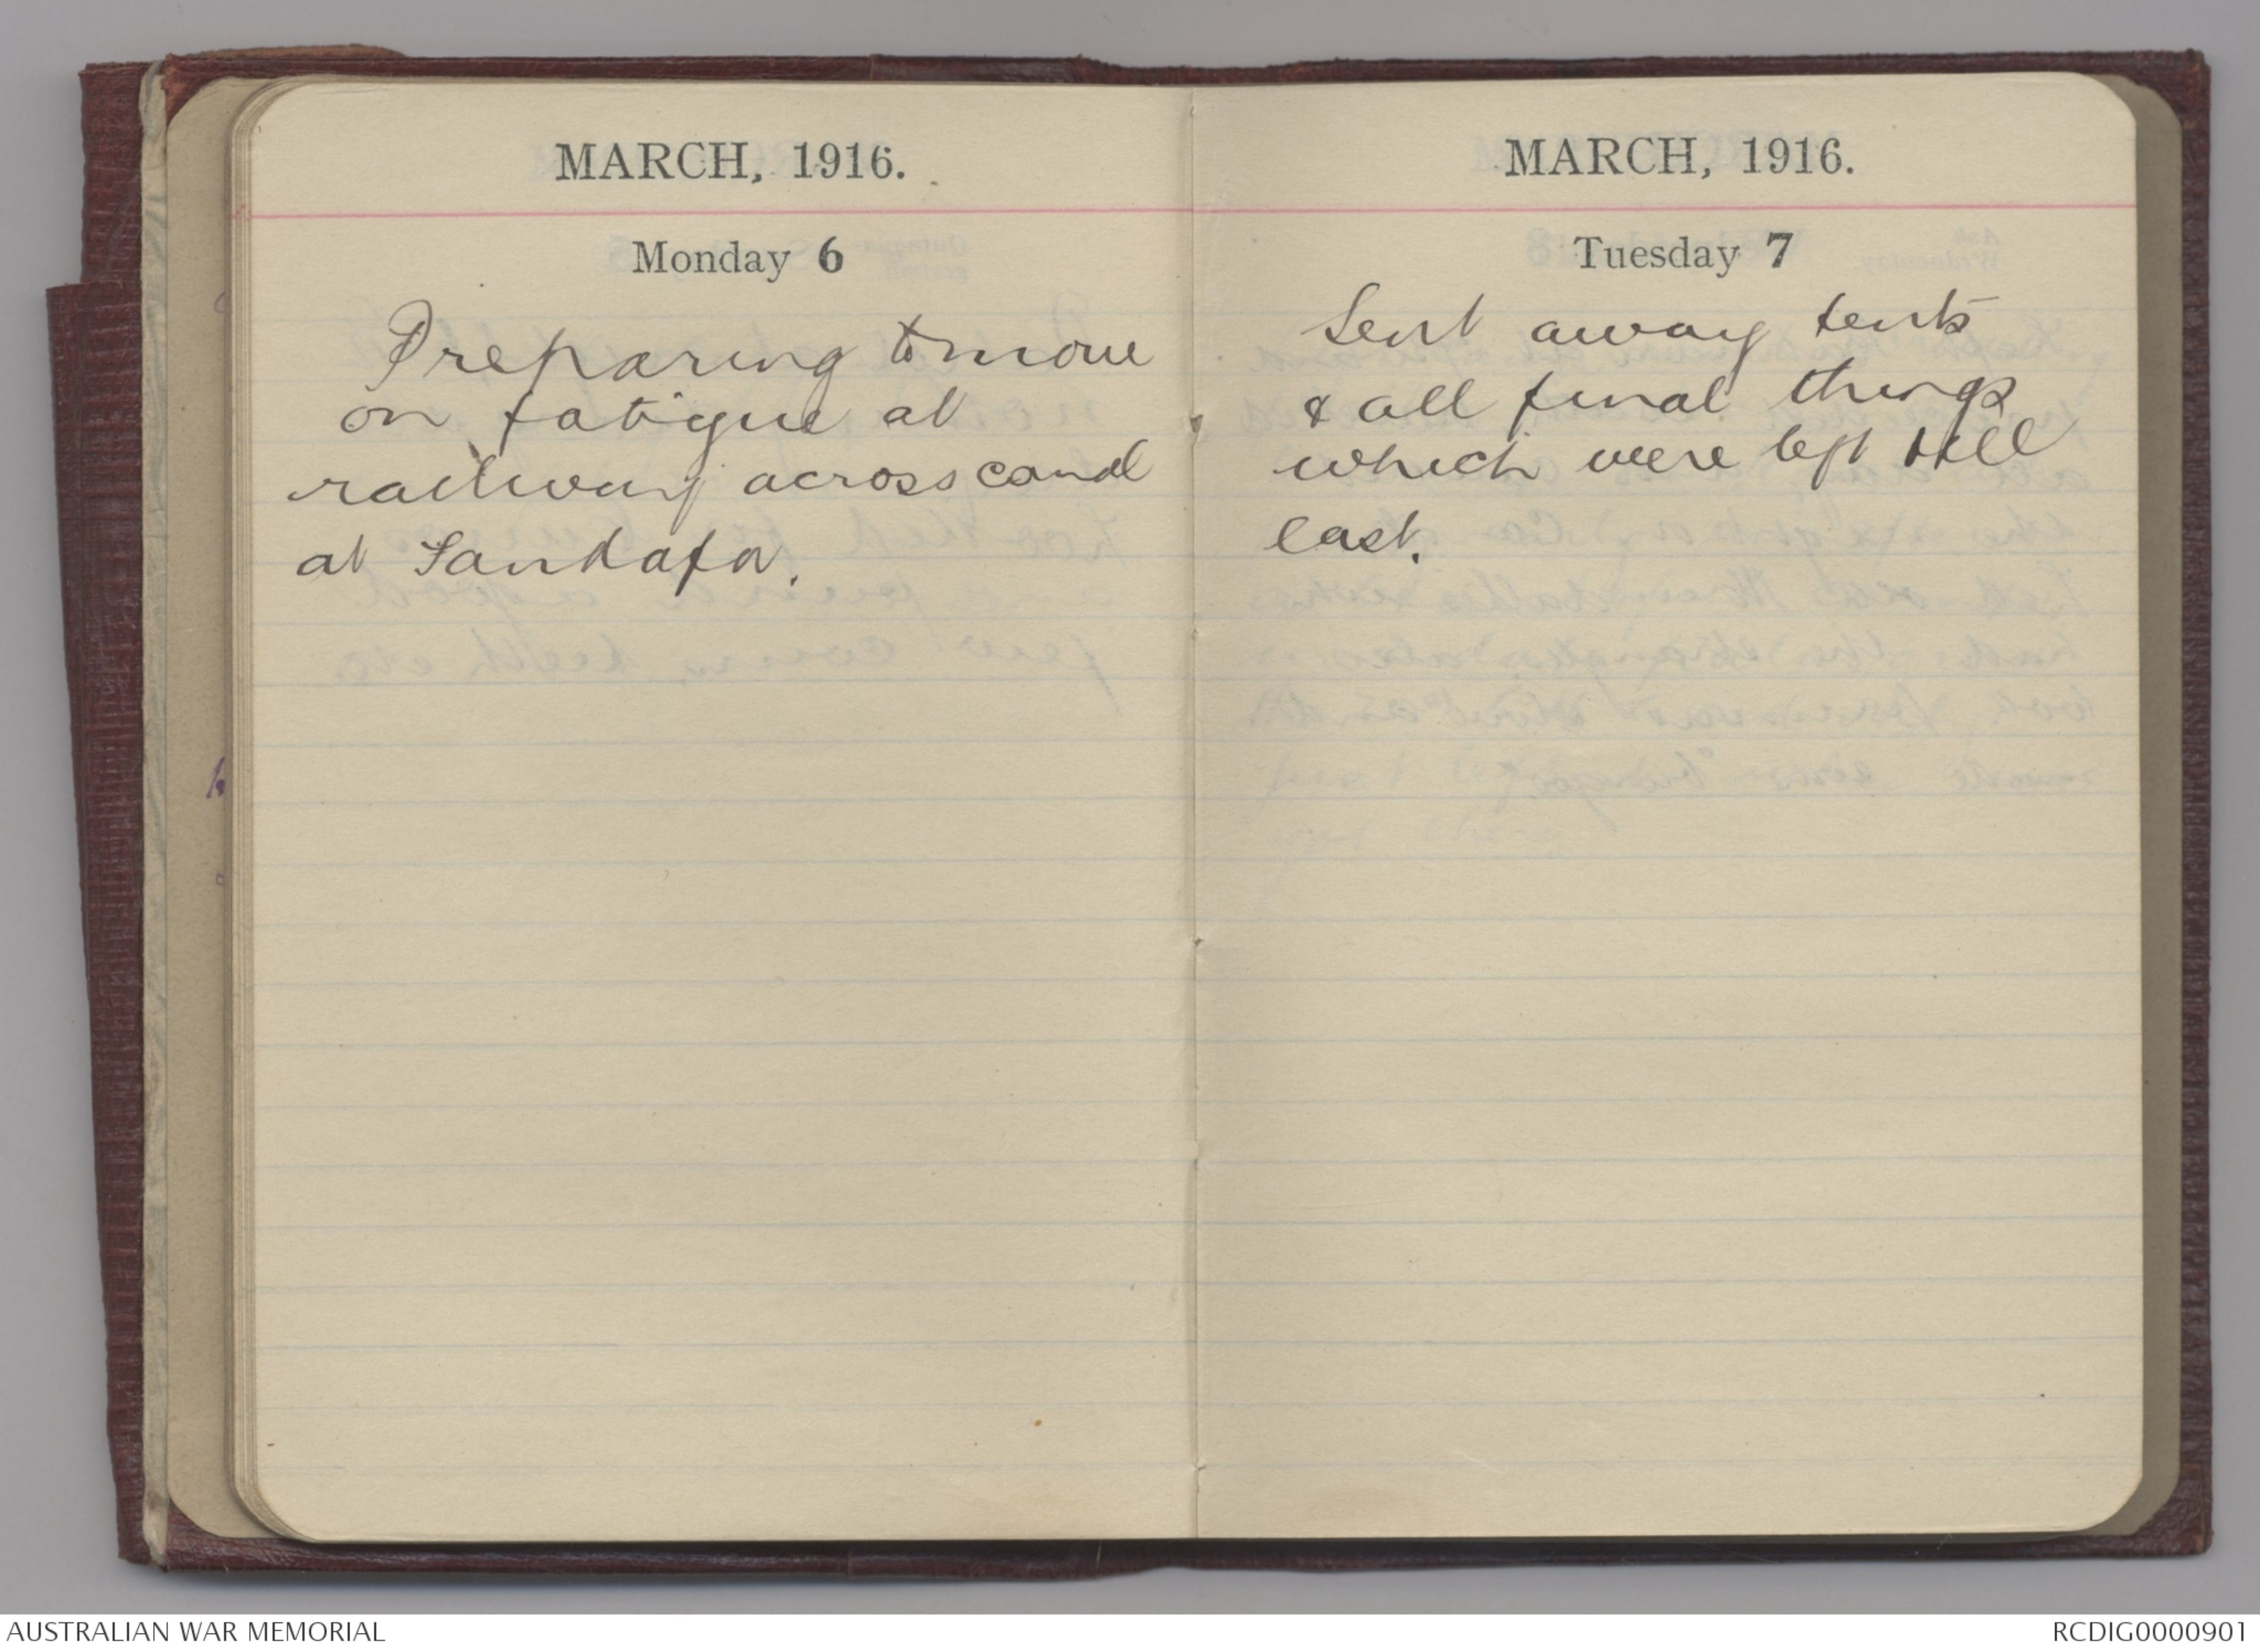 MARCH, 1916.
Monday 6
Preparing to move
on fatigue at
railway across canal
at Sandafa.
MARCH, 1916.
Tuesday 7
Sent away tents
& all final things
which were left till
last.
AUSTRALIAN WAR MEMORIAL
RCDIG0000901